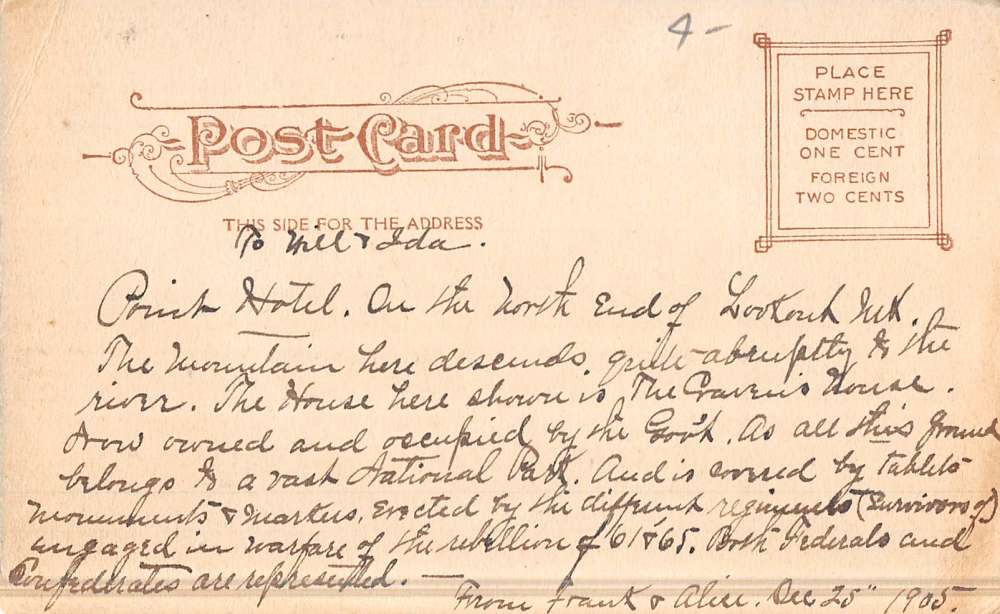 4-
Post Card
PLACE
STAMP HERE
DOMESTIC
ONE CENT
FOREIGN
TWO CENTS
THIS SIDE FOR THE ADDRESS
To Will & Ida.
Point Hotel. On the North End of Lookout Mt.
The Mountain here descends quite abruptly to the
river. The House here shown is The Craven's House.
Now owned and occupied by the Gov't. As all this ground
belongs to a vast National Park. And is covered by tablets
monuments & markers. Erected by the different regiments (survivors of)
engaged in warfare of the rebellion of '61 & '65. Both Federals and
Confederates are represented. —
From Frank & Alice. Dec 25" 1905